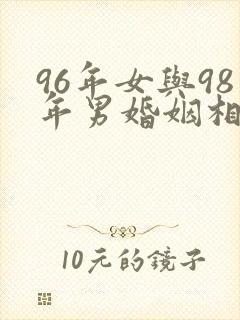 96年女與98
年男婚姻相
10元的鏡子